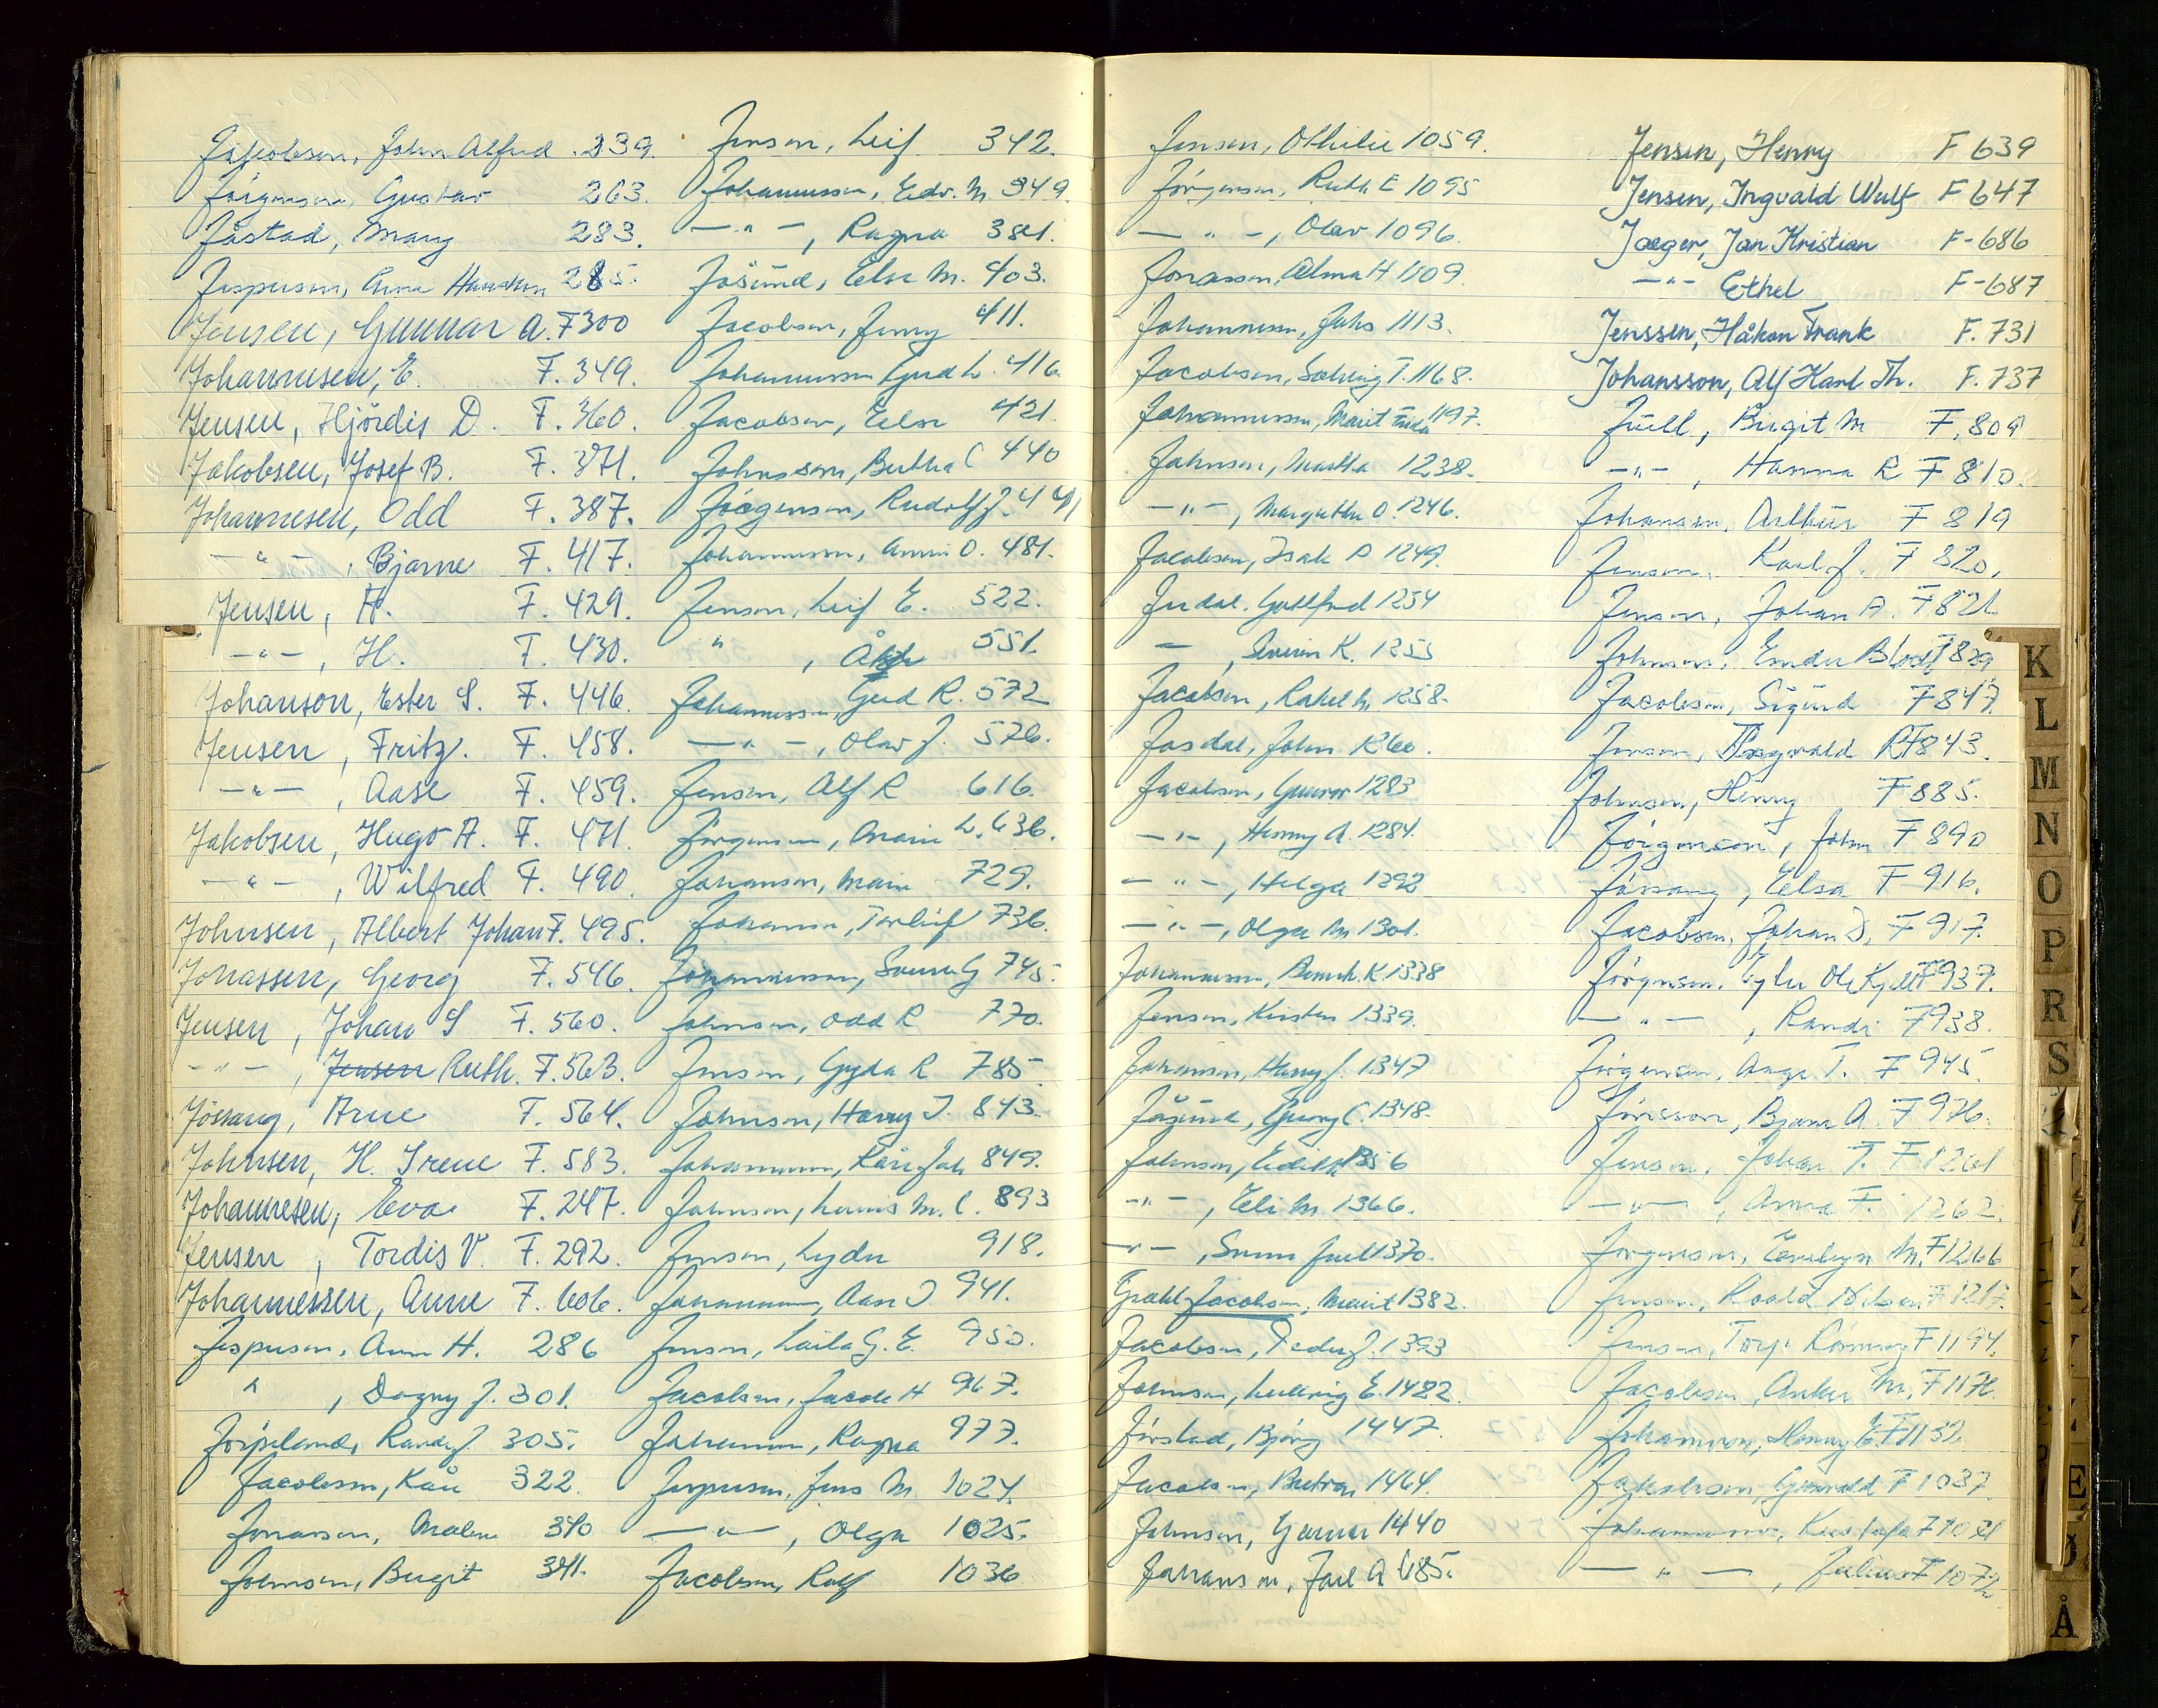 Jakobsen, John Alfred 239.
Jörgensen, Gustav 263.
Jåstad, Mary 283.
Jespersen, Anna 285.
Jensen, Gunnar A. F300
Johannesen, E. F. 349.
Jensen, Hjördis D. F. 360.
Jakobsen, Josef B. F. 371.
Johannesen, Odd F. 387.
—"—, Bjarne F. 417.
Jensen, A. F. 429.
—"—, H. F. 430.
Johanson, Ester S. F. 446.
Jensen, Fritz. F. 458.
—"—, Aase F. 459.
Jakobsen, Hugo A. F. 471.
—"—, Wilfred F. 490.
Johnsen, Albert Johan F. 495.
Jonassen, Georg F. 546.
Jensen, Johan S F. 560.
—"—, Jensen Ruth. F. 563.
Jössang, Arne F. 564.
Johnsen, H. Irene F. 583.
Johannesen, Eva F. 247.
Jensen, Tordis V. F. 292.
Johannessen, Anne F. 606.
Jespersen, Anna H. 286
", Dagny J. 301.
Jörpeland, Randi J. 305.
Jacobsen, Kåre 322.
Jonassen, Malene 340
Johnsen, Birgit 341.
Jensen, Leif 342.
Johannessen, Edv. M 349.
—"—, Ragna 381.
Jösund, Else M. 403.
Jacobsen, Jenny 411.
Johannessen Gerd L. 416.
Jacobsen, Else 421
Johnsson, Bertha C 440
Jörgensen, Rudolf J. 441
Johannessen, Annie O. 481.
Jensen, Leif E. 522.
", Åge 551.
Johannessen, Gerd R. 572
—"—, Olav J. 576.
Jensen, Alf R 616.
Jörgensen, Marie L. 636.
Johansen, Marie 729.
Johansen, Torleif 736.
Johannessen, Sverre G 745.
Johnsen, Odd R 770.
Jensen, Gyda R 785.
Johnsen, Harry I. 843.
Johannessen, Kåre Joh 849.
Johnsen, Lovis M. C. 893
Jensen, Lydia 918.
Johannessen, Aase I. 941.
Jensen, Laila G. E. 950.
Jacobsen, Jacob H 967.
Johansen, Ragna 977.
Jespersen, Jens M. 1024.
—"—, Olga 1025.
Jacobsen, Rolf 1036
Jensen, Othilie 1059.
Jörgensen, Ruth E 1095
—"—, Olav 1096.
Jonassen, Alma H 1109.
Johannessen, Johs 1113.
Jacobsen, Solveig T. 1168.
Johannessen, Marit Frida 1197.
Johnsen, Martha 1238.
—"—, Margrethe O. 1246.
Jacobsen, Isak P 1249.
Jurdal, Gottfred 1254
—, Severin K. 1255
Jacobsen, Rakel M 1258.
Josdal, John 1260.
Jacobsen, Gunvor 1283
—"—, Henny A. 1284.
—"—, Helga 1292
—"—, Olga M 1301.
Johannessen, K 1338
Jensen, Kirsten 1339.
Johansen, Harry J. 1347
Jösund, Georg C. 1348.
Johnsen, Edith 1356
—"—, Eli M. 1366.
—"—, Juell 1370.
Grahl-Jacobsen, Marit 1382.
Jacobsen, Peder J. 1393
Johnsen, Ludvig E. 1422.
Jörstad, Bjørg 1447.
Jacobsen, 1464.
Johnsen, Gunnar 1440
Johansen, Joel A 685.
Jensen, Henry F 639
Jensen, Ingvald Wulf F 647
Jaeger, Jan Kristian F-686
—"— Ethel F-687
Jenssen, Håkon Frank F. 731
Johansson, Alf Karl. Th. F. 737
Juell, Birgit M F. 809
—"—, Hanna R F 810.
Johansen, Arthur F 819
Jensen, Karl J. F 820.
Jensen, Johan A. F 821
Johnsen, F 829
Jacobsen, Sigurd F 847.
Jensen, Ragnvald R F843.
Johnsen, Henry F 885.
Jörgensen, John F 890
Jössang, Elsa F 916.
Jacobsen, Johan D. F 917.
Jörgensen, Ole Kjell F 937.
—"—, Randi F 938.
Jörgensen, Aage T. F 945.
Jonsson, Bjarne A. F 976.
Jensen, Johan T. F 1261
—"—, Anna F. 1262.
Jörgensen, Evelyn M. F 1266
Jensen, Roald F 1217.
Jensen, F 1194.
Jacobsen, M. F 1176.
Johansson, Henny E. F 1132
Jakobsen, F 1087.
Johannessen, F 1071
—"—, Julius F 1072
K
L
M
N
O
P
R
S
E
Ø
Å